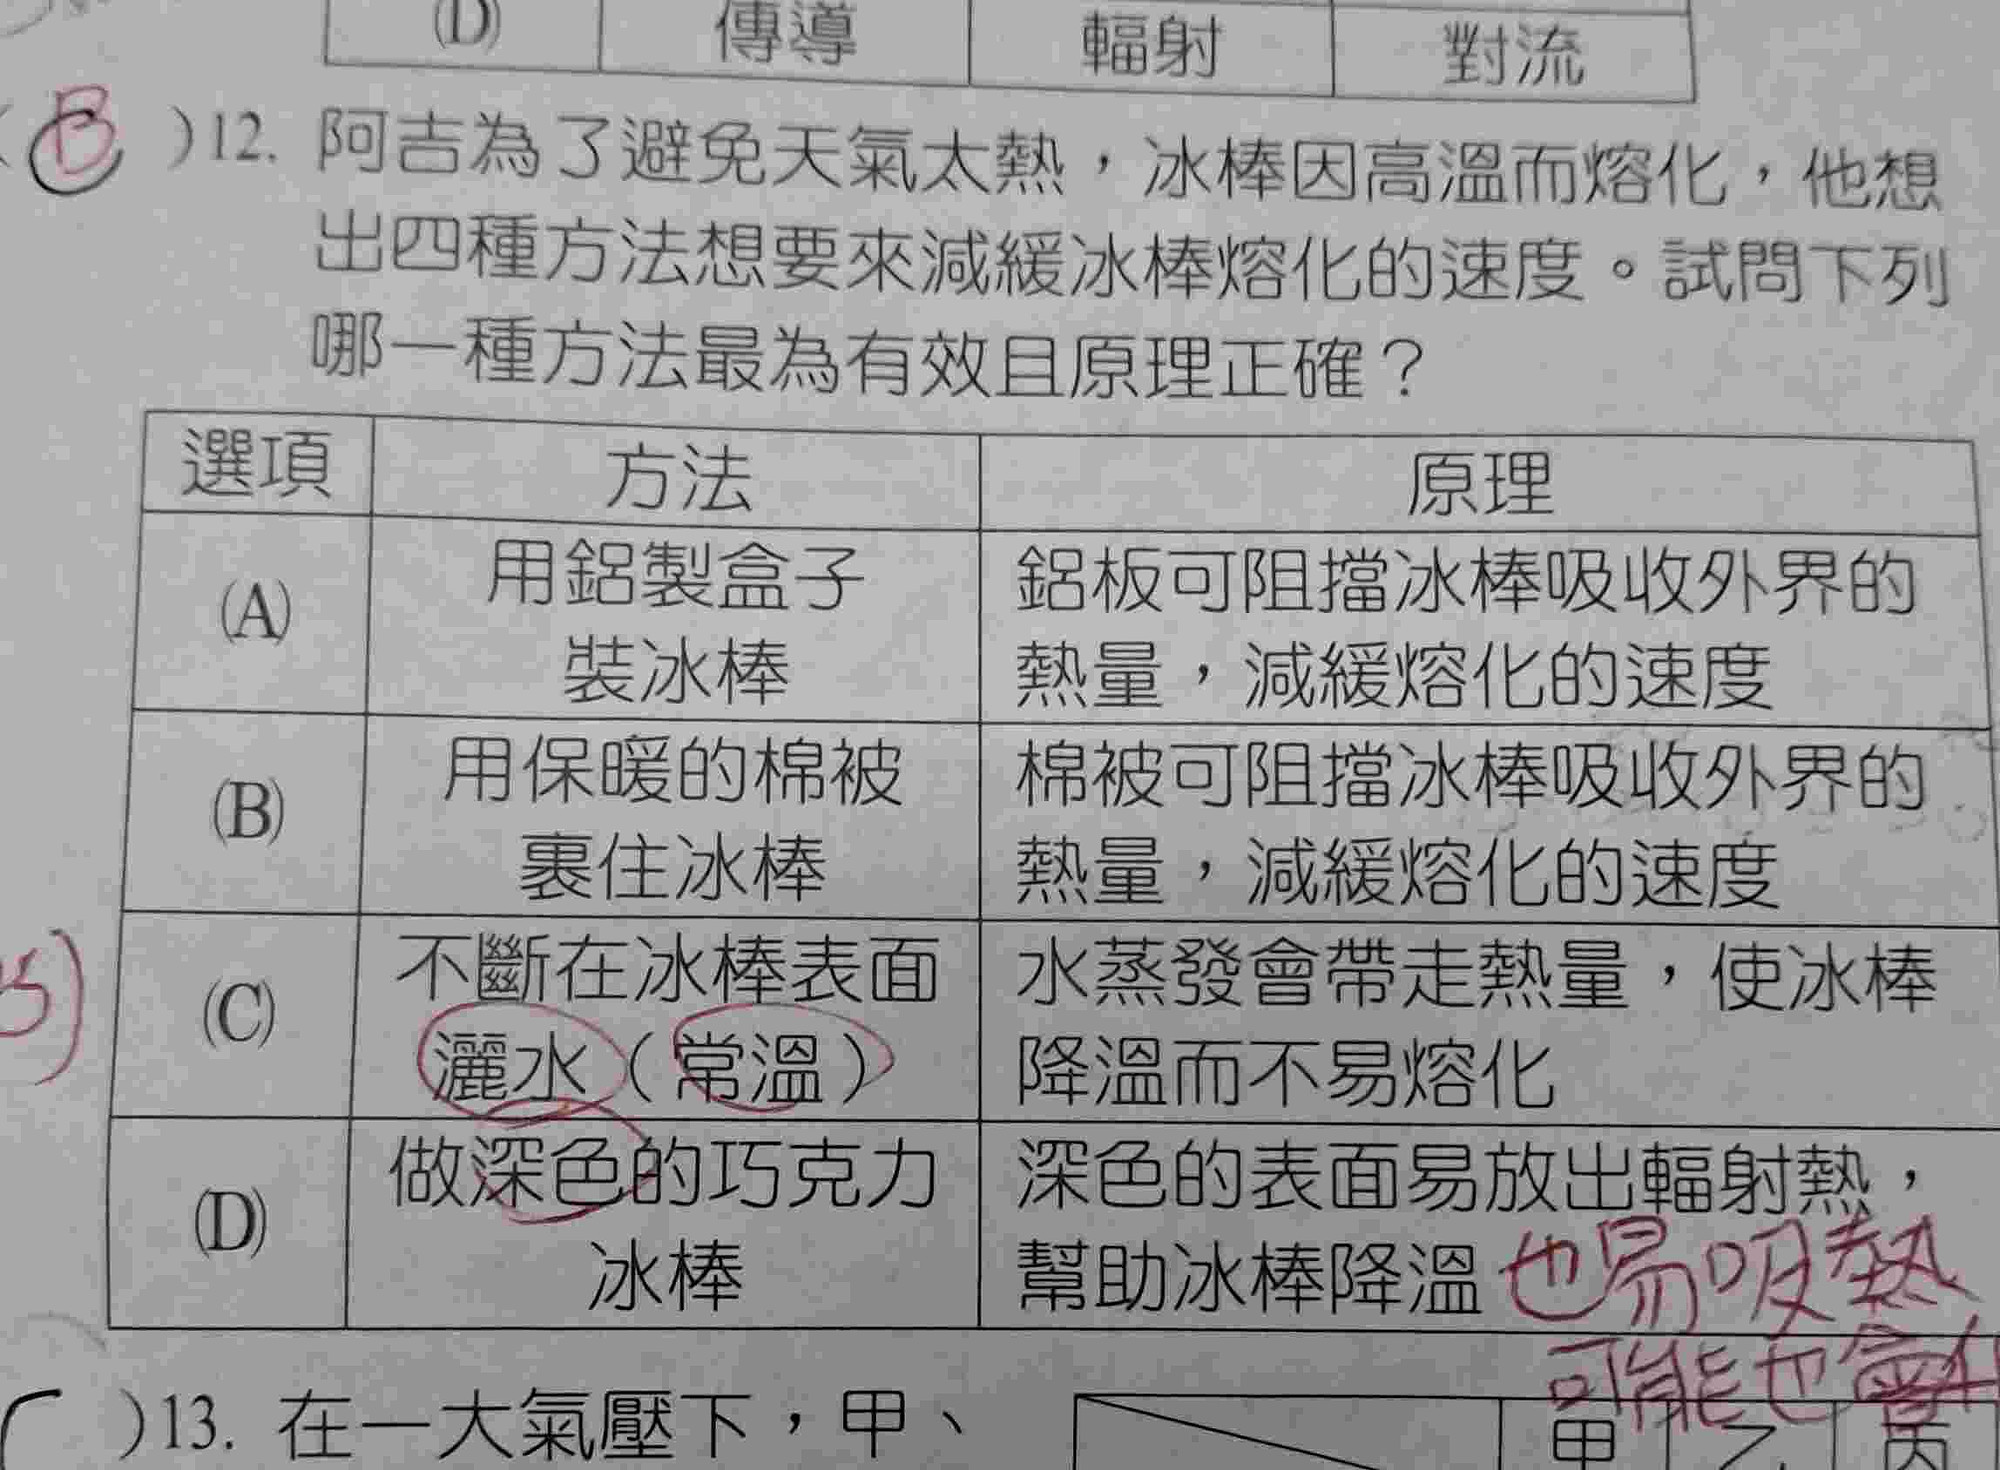 (D) 傳導 輻射 對流
(B)12. 阿吉為了避免天氣太熱，冰棒因高溫而熔化，他想
出四種方法想要來減緩冰棒熔化的速度。試問下列
哪一種方法最為有效且原理正確？
選項 方法 原理
(A) 用鋁製盒子 鋁板可阻擋冰棒吸收外界的
裝冰棒 熱量，減緩熔化的速度
(B) 用保暖的棉被 棉被可阻擋冰棒吸收外界的
裹住冰棒 熱量，減緩熔化的速度
(C) 不斷在冰棒表面 水蒸發會帶走熱量，使冰棒
灑水（常溫） 降溫而不易熔化
(D) 做深色的巧克力 深色的表面易放出輻射熱，
冰棒 幫助冰棒降溫 也易吸熱
可能也會
)13. 在一大氣壓下，甲、
甲 乙 丙